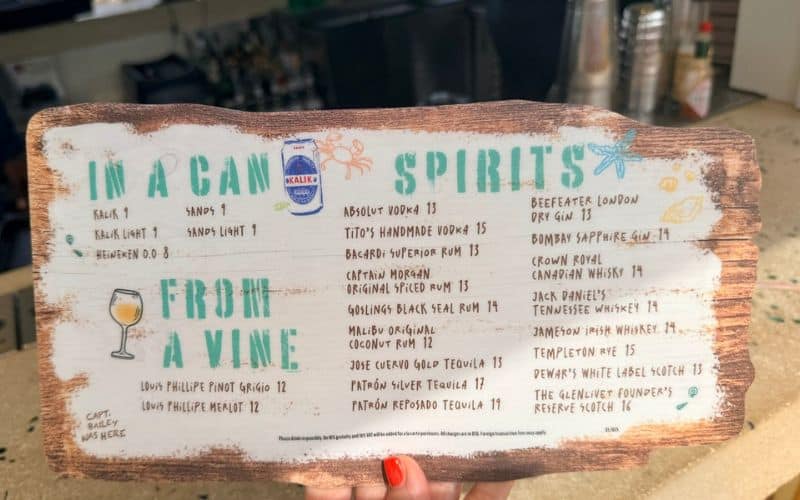 IN A CAN
KALIK
KALIK 9
SANDS 9
KALIK LIGHT 9
SANDS LIGHT 9
HEINEKEN 0.0 8
FROM
A VINE
LOUIS PHILLIPE PINOT GRIGIO 12
LOUIS PHILLIPE MERLOT 12
CAPT.
BAILEY
WAS HERE
SPIRITS
ABSOLUT VODKA 13
TITO'S HANDMADE VODKA 15
BACARDI SUPERIOR RUM 13
CAPTAIN MORGAN
ORIGINAL SPICED RUM 13
GOSLINGS BLACK SEAL RUM 14
MALIBU ORIGINAL
COCONUT RUM 12
JOSE CUERVO GOLD TEQUILA 13
PATRÓN SILVER TEQUILA 17
PATRÓN REPOSADO TEQUILA 19
BEEFEATER LONDON
DRY GIN 13
BOMBAY SAPPHIRE GIN 14
CROWN ROYAL
CANADIAN WHISKY 14
JACK DANIEL'S
TENNESSEE WHISKEY 14
JAMESON IRISH WHISKEY 14
TEMPLETON RYE 15
DEWAR'S WHITE LABEL SCOTCH 13
THE GLENLIVET FOUNDER'S
RESERVE SCOTCH 16
Please drink responsibly.